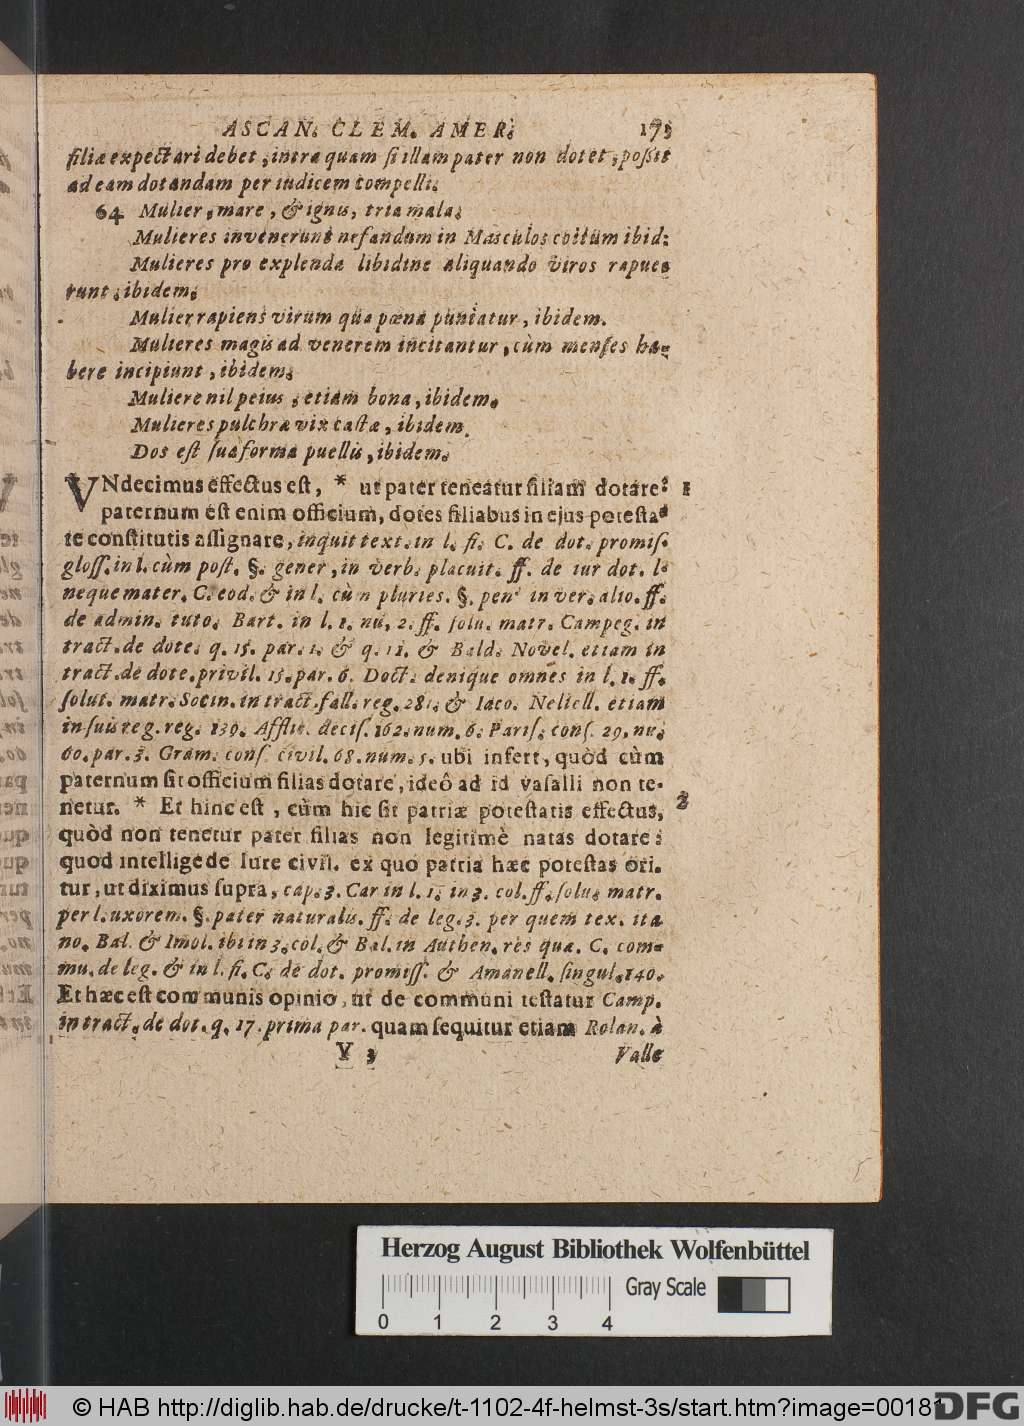 ASCAN. CLEM. AMER. 173
filiæ expectari debet, intra quam si illam pater non dotet, possit
ad eam dotandam per iudicem compelli.
64 Mulier, mare, & ignis, tria mala.
Mulieres invenerunt nefandum in Masculos coitum ibid.
Mulieres pro explenda libidine aliquando viros rapue-
runt, ibidem.
Mulier rapiens virum qua pœna puniatur, ibidem.
Mulieres magis ad venerem incitantur, cùm menses ha-
bere incipiunt, ibidem.
Muliere nil peius, etiam bona, ibidem.
Mulieres pulchræ vix castæ, ibidem.
Dos est sua forma puellis, ibidem.
VNdecimus effectus est, * ut pater teneatur filiam dotare: 1
paternum est enim officium, dotes filiabus in ejus potesta-
te constitutis assignare, inquit text. in l. fi. C. de dot. promis.
gloss. in l. cùm post. §. gener, in verb. placuit. ff. de iur dot. l.
neque mater. C. eod. & in l. cùm pluries. §. pen. in ver. alio. ff.
de admin. tuto. Bart. in l. 1. nu. 2. ff. solu. matr. Campeg. in
tract. de dote. q. 15. par. 1. & q. 12. & Bald. Novel. etiam in
tract. de dote. privil. 15. par. 6. Doct. denique omnes in l. 1. ff.
solut. matr. Socin. in tract. fall. reg. 281. & Iaco. Neliell. etiam
in suis reg. reg. 139. Afflic. decis. 162. num. 6. Paris. cons. 29. nu.
60. par. 3. Gram. cons. civil. 68. num. 5. ubi infert, quòd cùm
paternum sit officium filias dotare, ideô ad id vasalli non te-
netur. * Et hinc est, cùm hic sit patriæ potestatis effectus, 2
quòd non tenetur pater filias non legitimè natas dotare:
quod intellige de Iure civil. ex quo patria hæc potestas ori-
tur, ut diximus supra, cap. 3. Car in l. 1. in 3. col. ff. solu. matr.
per l. uxorem. §. pater naturalis. ff. de leg. 3. per quem tex. ita
no. Bal. & Imol. ibi in 3. col. & Bal. in Authen. res qua. C. com-
mu. de leg. & in l. fi. C. de dot. promiss. & Amanell. singul. 140.
Et hæc est communis opinio, ut de communi testatur Camp.
in tract. de dot. q. 17. prima par. quam sequitur etiam Rolan. à
V 3 Valle
Herzog August Bibliothek Wolfenbüttel
Gray Scale
0 1 2 3 4
© HAB http://diglib.hab.de/drucke/t-1102-4f-helmst-3s/start.htm?image=00181
DFG